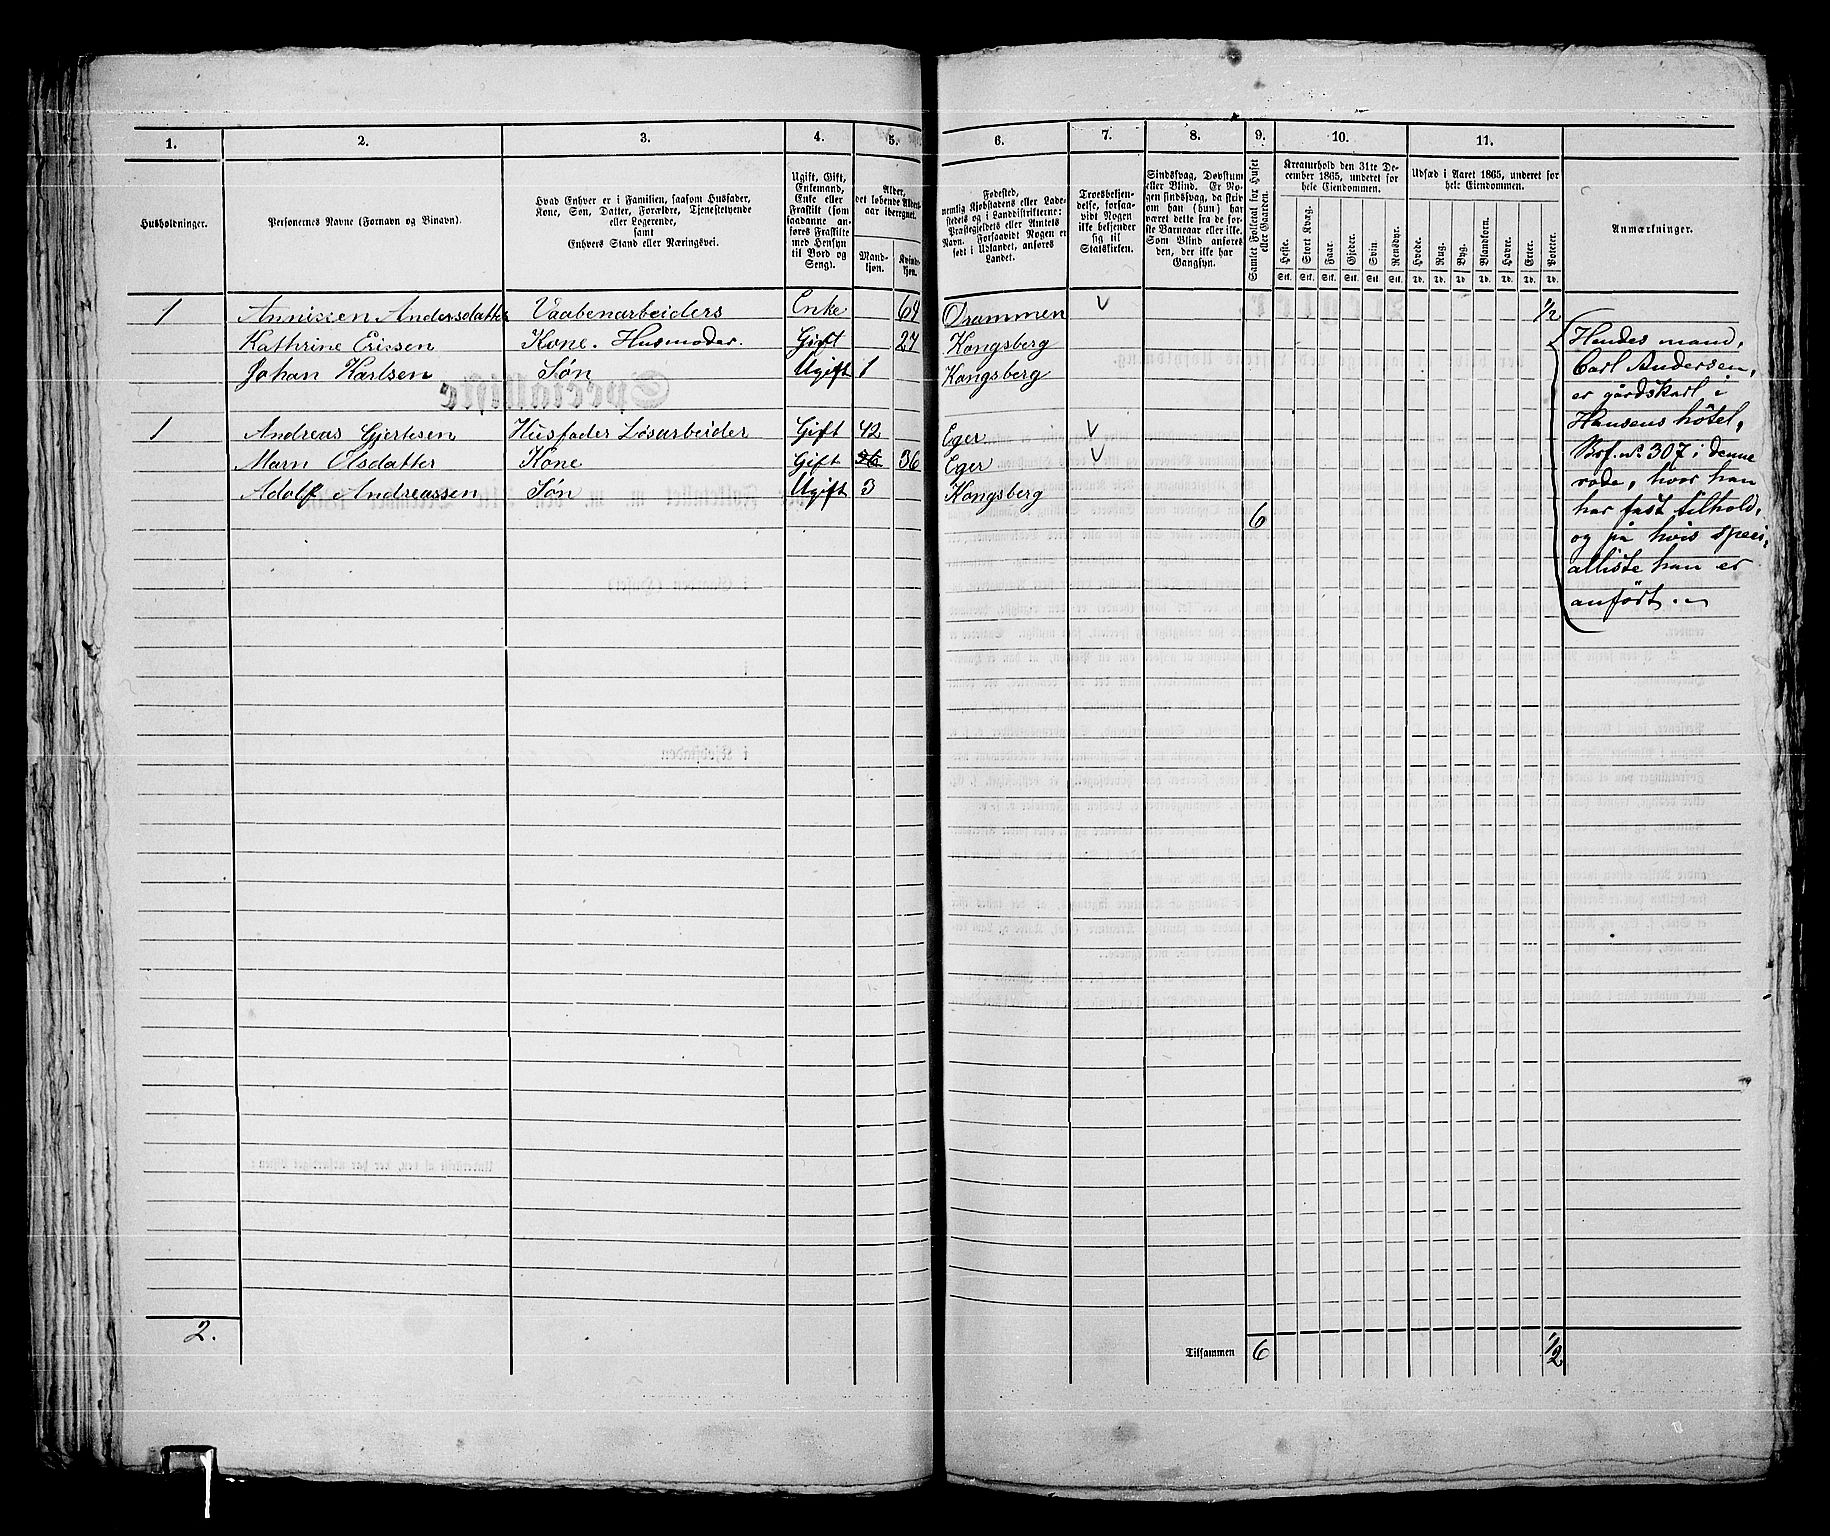 1. 2. 3. 4. 5. 6. 7. 8. 9. 10. 11.
Husholdninger.
Personernes Navne (Fornavn og Binavn).
Hvad Enhver er i Familien, saasom Husfader,
Kone, Søn, Datter, Forældre, Tjenestetyende
eller Logerende,
samt
Enhvers Stand eller Næringsvei.
Ugift, Gift,
Enkemand,
Enke eller
Fraskilt (som
saadanne an-
føres Fraskilte
med Hensyn
til Bord og
Seng).
Alder,
det løbende Alders-
aar iberegnet.
Mand-
kjøn.
Kvind-
kjøn.
Fødested,
nemlig Kjøbstadens eller Lade-
stedets og i Landdistrikterne:
Præstegjeldets eller Amtets
Navn. Forsaavidt Nogen er
født i Udlandet, anføres
Landet.
Troesbekjen-
delse, forsaa-
vidt Nogen
ikke bekjender
sig til
Statskirken.
Sindssvag, Døvstum
eller Blind. Er No-
gen sindssvag, da skriv
om han (hun) har
været dette fra de før-
ste Barneaar eller ikke.
Som Blind anføres
den, der ikke har
Gangsyn.
Samlet Folketal for Huset
eller Gaarden.
Kreaturhold den 31te De-
cember 1865, underet for
hele Eiendommen.
Heste. Stort Kvæg. Faar. Gjeder. Svin. Rensdyr.
Stk. Stk. Stk. Stk. Stk. Stk.
Udsæd i Aaret 1865, underet for
hele Eiendommen.
Hvede. Rug. Byg. Blandkorn. Havre. Erter. Poteter.
Td. Td. Td. Td. Td. Td. Td.
Anmærkninger.
1 Andersdatter Vaabenarbeiders Enke 69 Drammen 1/2
Kathrine Kone. Husmoder. Gift 27 Kongsberg
Johan Karlsen Søn Ugift 1 Kongsberg
1 Andreas Gjertesen Husfader Løsarbeider Gift 42 Eger
Marn Olsdatter Kone Gift 36 36 Eger
Adolf Andreassen Søn Ugift 3 Kongsberg
6
Hendes mand,
Carl Andersen,
er gårdskarl i
Hansens hôtel,
No. 307 i denne
rode, hvor han
har fast tilhold,
og på hvis speci-
alliste han er
anført.
2.
Tilsammen 6 1/2